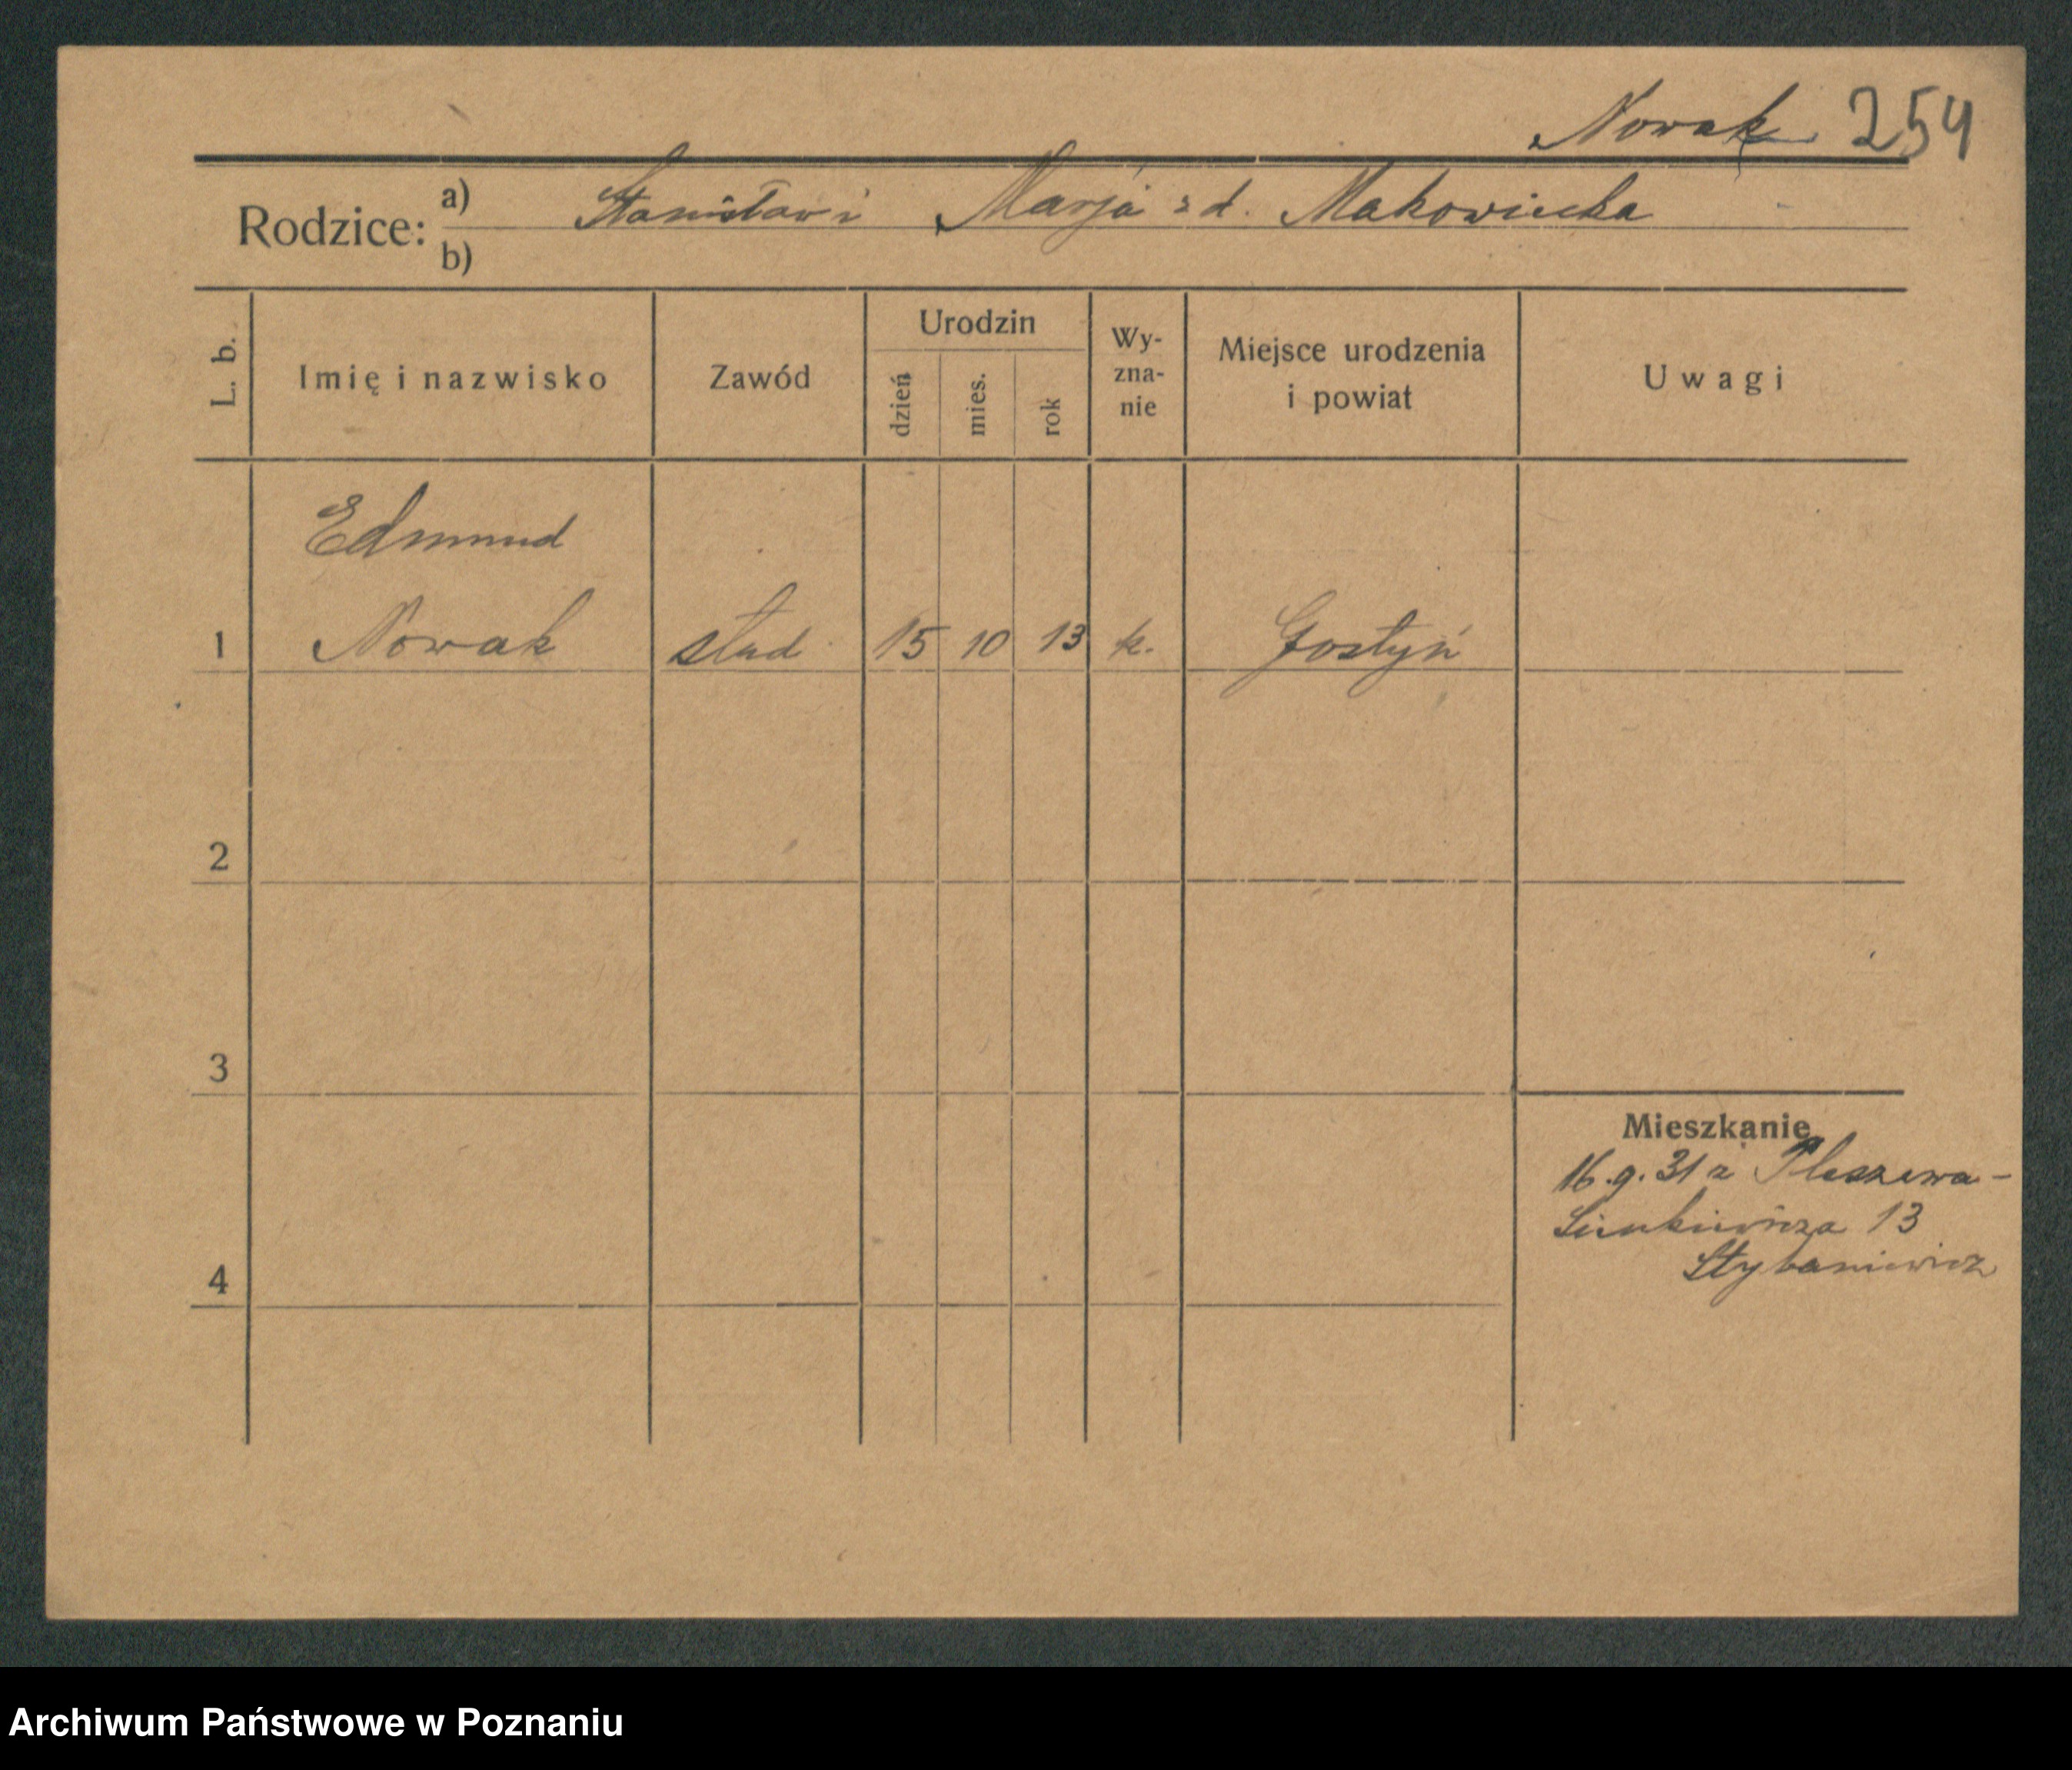 Nowak 254
Rodzice: a) Stanisław i Marja z d. Makowiecka
b)
L. b. Imię i nazwisko Zawód Urodzin dzień mies. rok Wy-zna-nie Miejsce urodzenia i powiat Uwagi
Edmund
1 Nowak stud 15 10 13 k. Gostyń
2
3
Mieszkanie
16.9.31 z Pleszewa -
Sienkiewicza 13
4
Archiwum Państwowe w Poznaniu